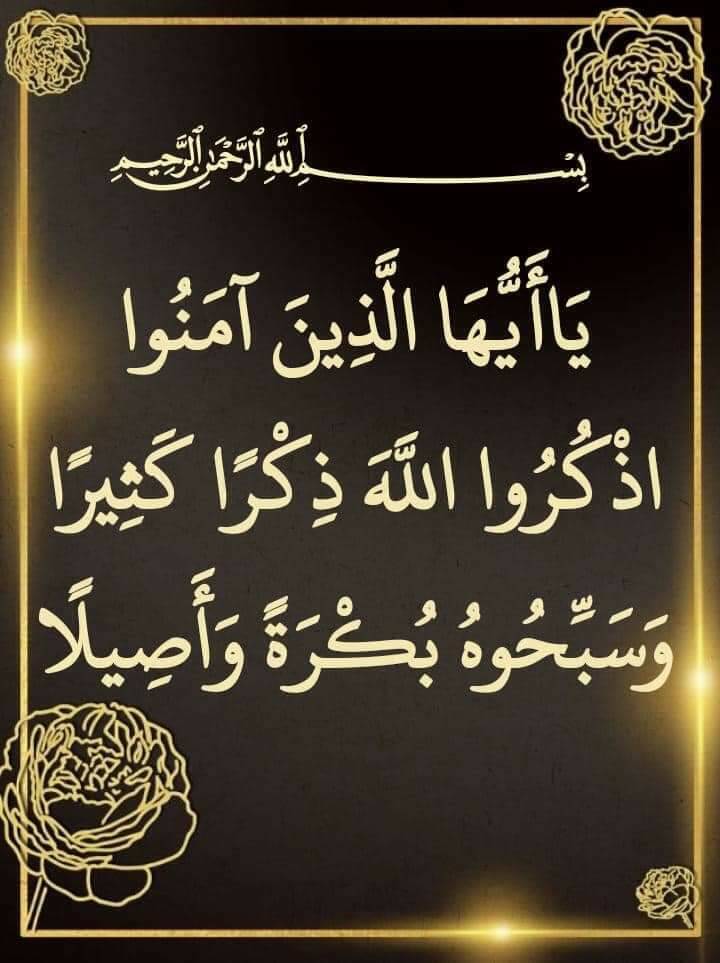 بِسْمِ ٱللَّهِ ٱلرَّحْمَٰنِ ٱلرَّحِيمِ
يَاأَيُّهَا الَّذِينَ آمَنُوا
اذْكُرُوا اللَّهَ ذِكْرًا كَثِيرًا
وَسَبِّحُوهُ بُكْرَةً وَأَصِيلًا